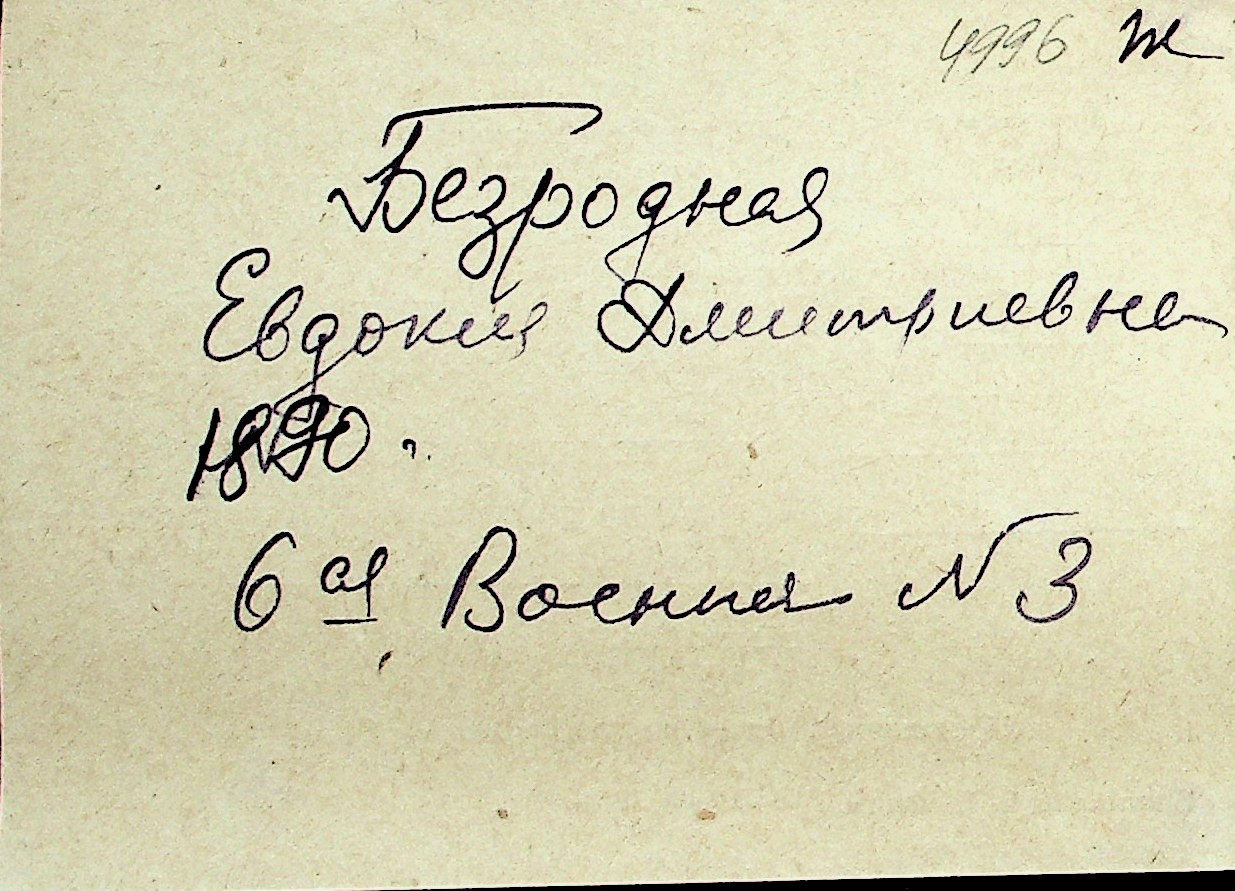 4996 Ж
Безродная
Евдокия Дмитриевна
1890
6 ая Военная N 3